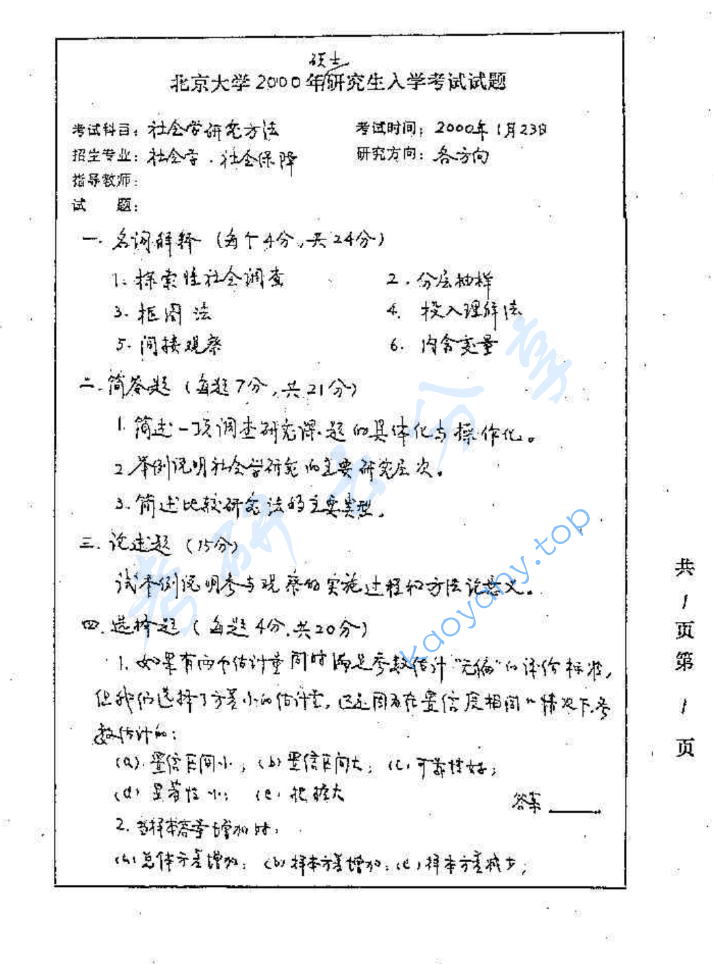 硕士
北京大学2000年研究生入学考试试题
考试科目：社会学研究方法 考试时间：2000年1月23日
招生专业：社会学．社会保障 研究方向：各方向
指导教师：
试 题：
一．名词解释（每个4分，共24分）
1．探索性社会调查 2．分层抽样
3．框图法 4．投入理解法
5．间接观察 6．内含变量
二．简答题（每题7分，共21分）
1．简述一项调查研究课题的具体化与操作化。
2．举例说明社会学研究的主要研究层次。
3．简述比较研究法的主要类型。
三．论述题（15分）
试举例说明参与观察的实施过程和方法论意义。
四．选择题（每题4分，共20分）
1．如果有两个估计量同时满足参数估计“无偏”的评价标准，
但我们选择了方差小的估计量，这是因为在置信度相同的情况下，参
数估计的：
(a)．置信区间小；(b)置信区间大；(c)可靠性好；
(d)显著性小；(e) 答案
2．当样本容量增加时，
(a)总体方差增加；(b)样本方差增加；(c)样本方差减少；
共1页第1页
考研云分享
kaoyany.top